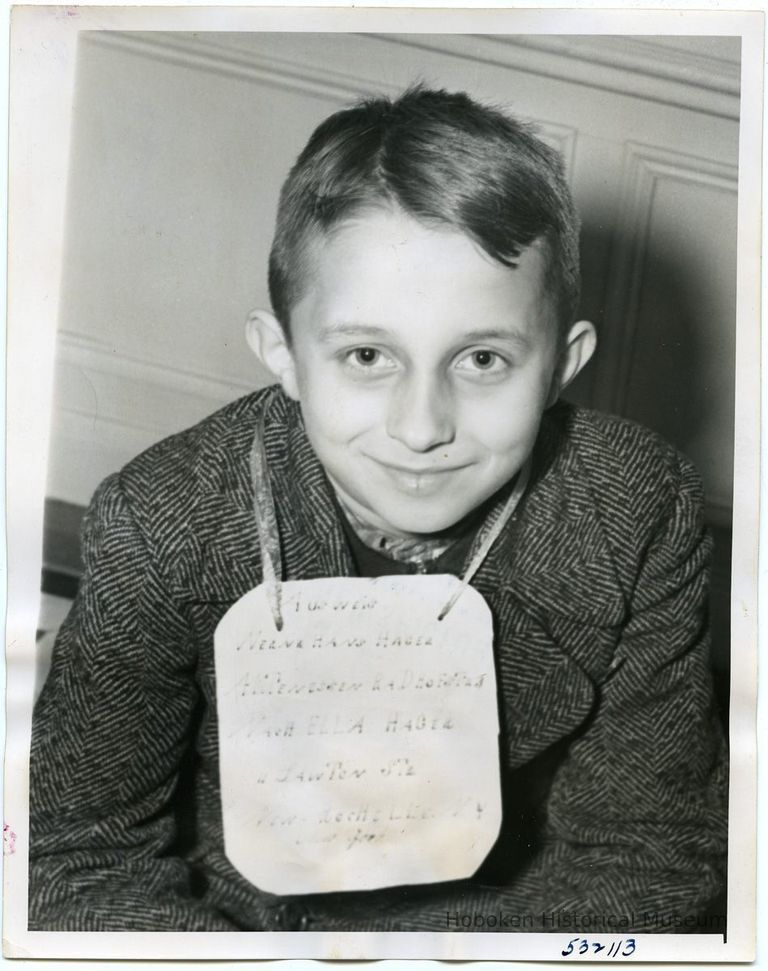 AUSWEIS
HANS HAGER
NACH ELLA HAGER
LAWTON STR
NEW ROCHELLE. N.Y
Hoboken Historical Museum
532113